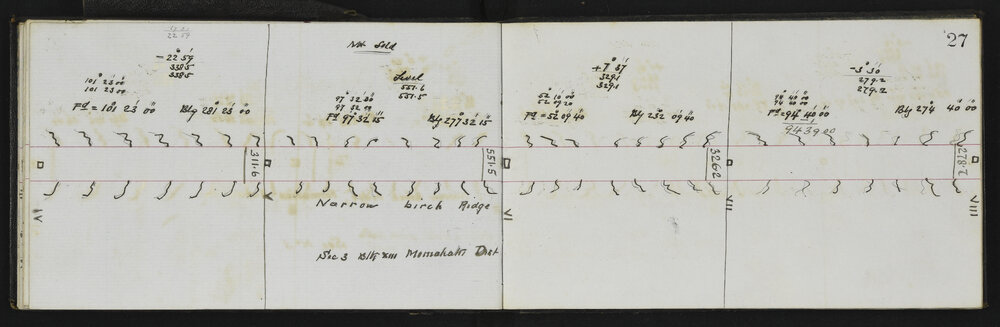 27
22 59
- 22° 59'
338.5
338.5
101° 23' 00"
101 23 00
Fd = 101° 23' 00"
Bkg 281° 23' 00"
311.6
IV
Not Sold
Level
551.6
551.5
97° 32' 30"
97 32 00
Fd 97° 32' 15"
Bkg 277° 32' 15"
551.5
V
Narrow birch Ridge
Sec 3 Blk XIII Momahaki Dist
+ 7° 37'
329.1
329.1
52° 10' 00"
52 09 20
Fd = 52° 09' 40"
Bkg 232° 09' 40"
326.2
VI
VII
- 3° 30'
279.2
279.2
94° 40' 00"
94 40 00
Fd = 94° 40' 00"
94 39 00
Bkg 274° 40' 00"
278.7
VIII